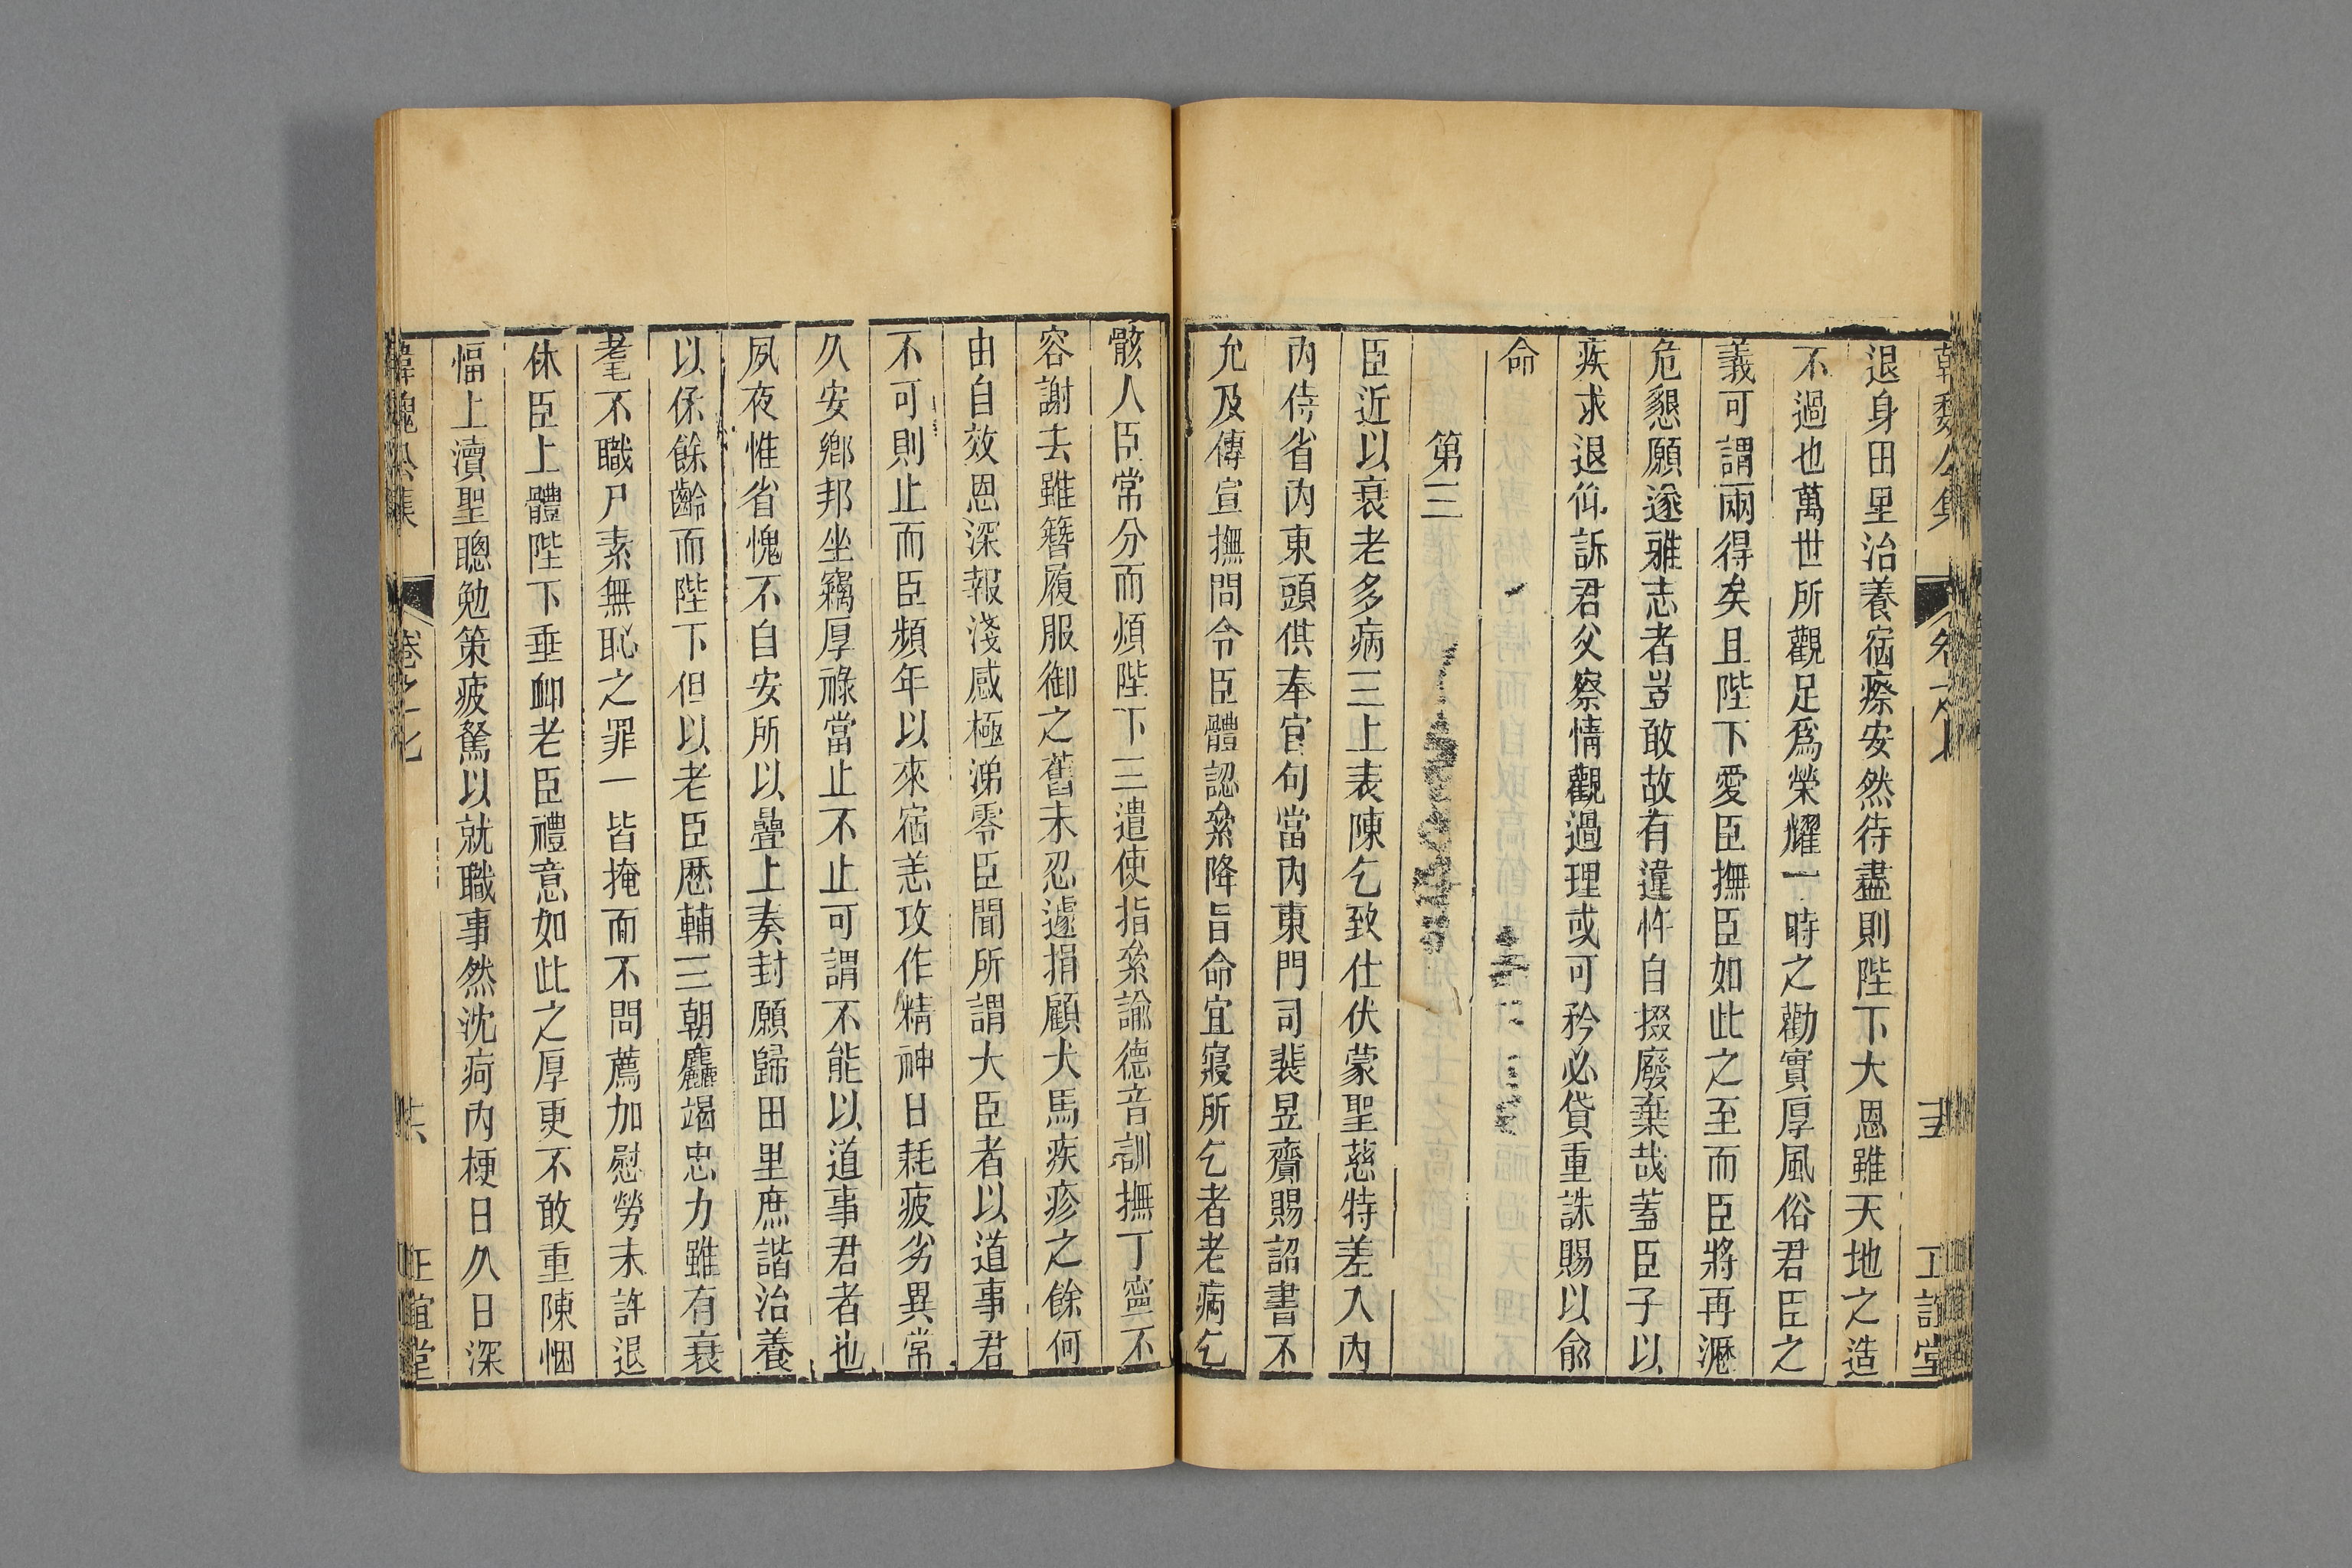 退身田里治養宿瘵安然待盡則陛下大恩雖天地之造
不過也萬世所觀足爲榮耀一時之勸實厚風俗君臣之
義可謂兩得矣且陛下愛臣撫臣如此之至而臣將再瀝
危懇願遂雅志者豈敢故有違忤自掇廢棄哉蓋臣子以
疾求退仰訴君父察情觀過理或可矜必貸重誅賜以俞
命
第三
臣近以衰老多病三上表陳乞致仕伏蒙聖慈特差入內
內侍省內東頭供奉官句當內東門司裴昱齎賜詔書不
允及傳宣撫問令臣體認絫降旨命宜寢所乞者老病乞
骸人臣常分而煩陛下三遣使指絫諭德音訓撫丁寧不
容謝去雖簪履服御之舊未忍遽捐顧犬馬疾疹之餘何
由自效恩深報淺感極涕零臣聞所謂大臣者以道事君
不可則止而臣頻年以來宿恙攻作精神日耗疲劣異常
久安鄉邦坐竊厚祿當止不止可謂不能以道事君者也
夙夜惟省愧不自安所以疊上奏封願歸田里庶諧治養
以係餘齡而陛下但以老臣歷輔三朝麤竭忠力雖有衰
耄不職尸素無恥之罪一皆掩而不問薦加慰勞未許退
休臣上體陛下垂卹老臣禮意如此之厚更不敢重陳悃
愊上瀆聖聰勉策疲駑以就職事然沈疴內梗日久日深
韓魏公集
卷之七
正誼堂